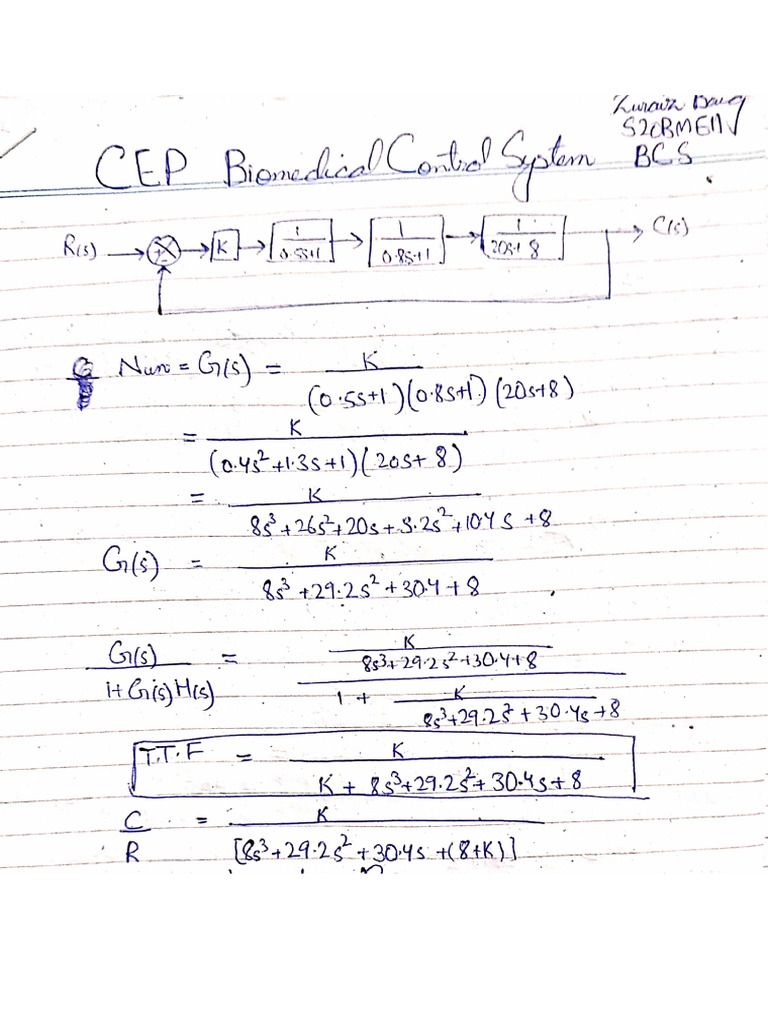 S20BME11
CEP Biomedical Control System BCS
R(s) → K → 1/(0.5s+1) → 1/(0.8s+1) → 1/(20s+8) → C(s)
Num = G(s) = K / (0.5s+1)(0.8s+1)(20s+8)
= K / (0.4s²+1.3s+1)(20s+8)
= K / 8s³+26s²+20s+3.2s²+10.4s+8
G(s) = K / 8s³+29.2s²+30.4+8
G(s) / 1+G(s)H(s) = K / 8s³+29.2s²+30.4+8 / 1 + K / 8s³+29.2s²+30.4s+8
T.T.F = K / K + 8s³+29.2s²+30.4s+8
C / R = K / [8s³+29.2s²+30.4s+(8+K)]